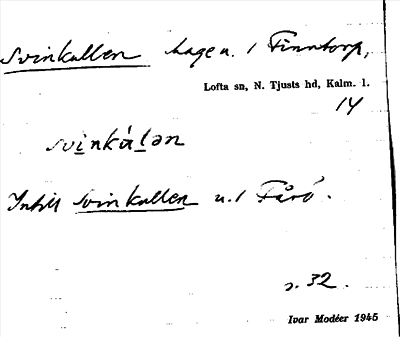 Svinkullen hage u. / Finntorp,
Lofta sn, N. Tjusts hd, Kalm. l.
14
svinkálən
Intill Svinkullen u. / Fårö.
s. 32.
Ivar Modéer 1945